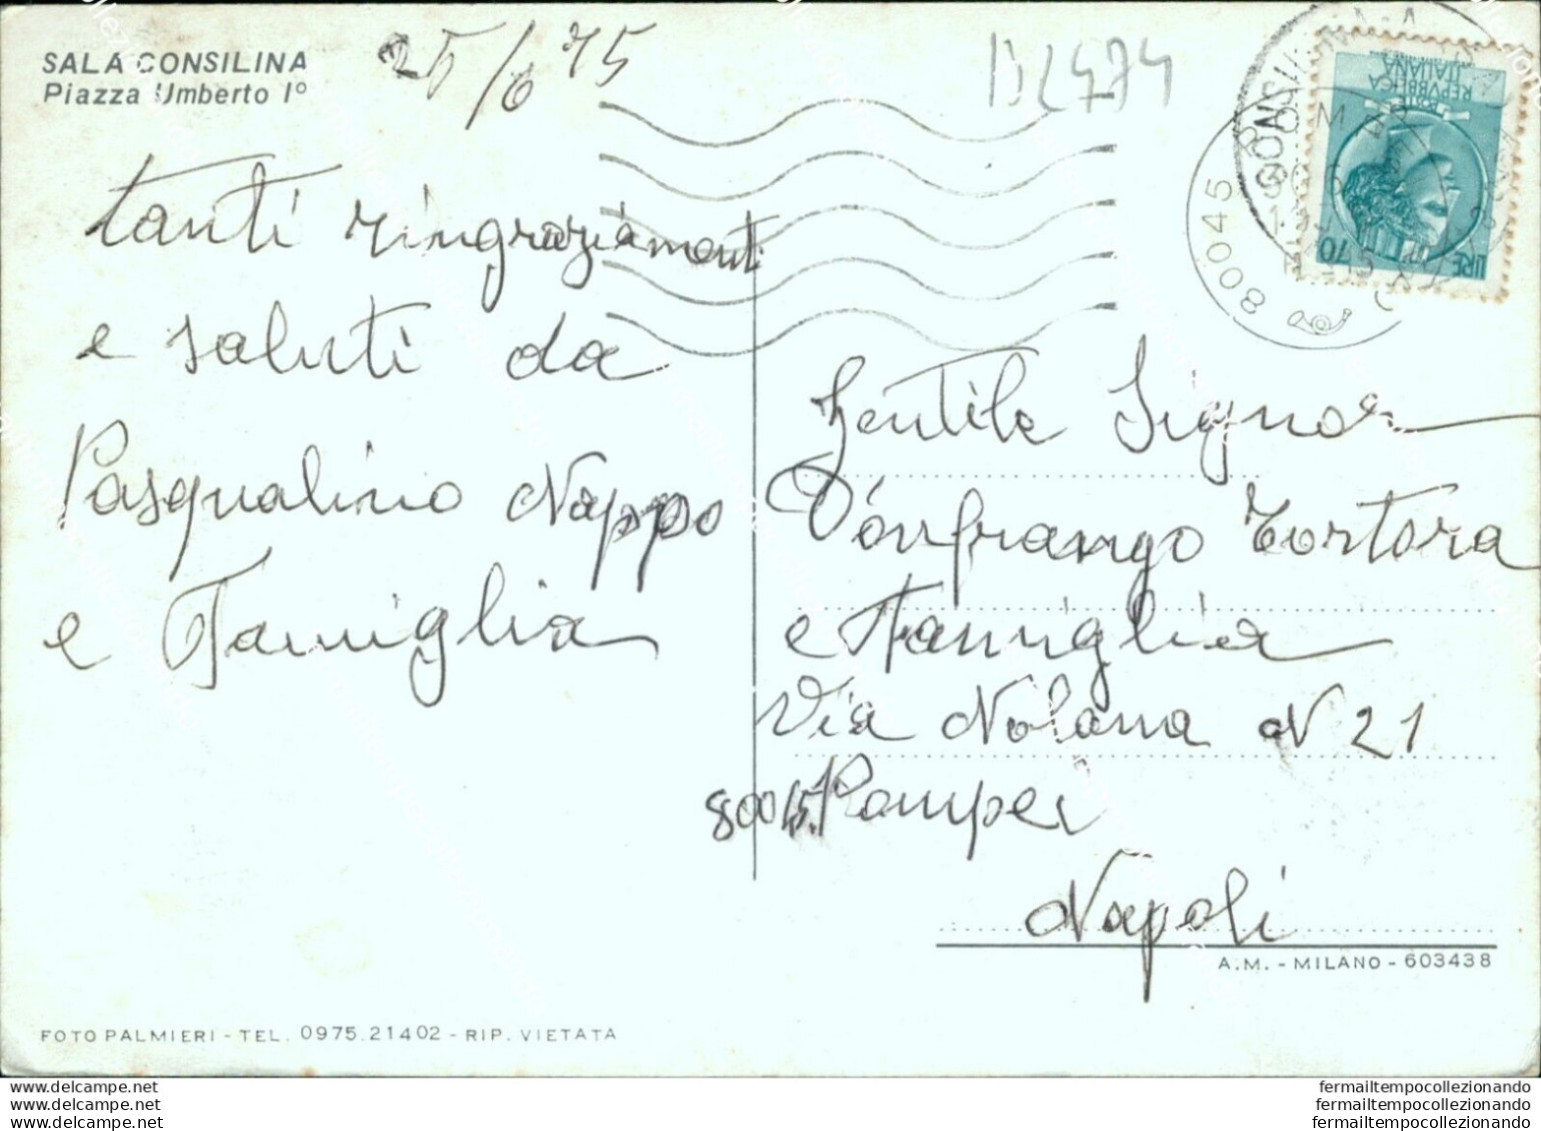 SALA CONSILINA
Piazza Umberto Iº
25/6 75
BL474
tanti ringraziamenti
e saluti da
Pasqualino Nappo
e Famiglia
80045
LIRE 70
POSTE
REPVBBLICA
ITALIANA
Gentile Signor
D'onfrango Tortora
e Famiglia
Via Nolana N 21
80045 Pompei
Napoli
A.M. - MILANO - 603438
FOTO PALMIERI - TEL. 0975.21402 - RIP. VIETATA
www.delcampe.net
www.delcampe.net
www.delcampe.net
fermailtempocollezionando
fermailtempocollezionando
fermailtempocollezionando